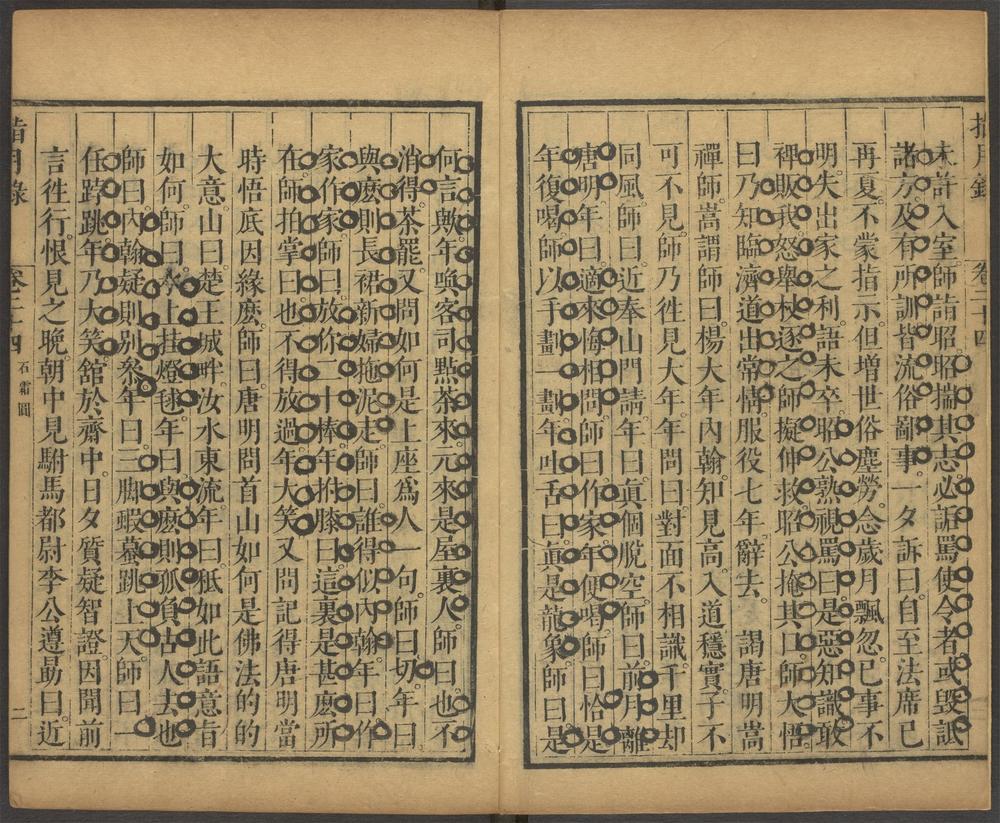 指月錄 卷二十四
未許入室師詣昭昭揣其志必詬罵使令者或毀詆
諸方及有所訓皆流俗鄙事一夕訴曰自至法席已
再夏不蒙指示但增世俗塵勞念歲月飄忽已事不
明失出家之利語未卒昭公熟視罵曰是惡知識敢
裨販我怒舉杖逐之師擬伸救昭公掩其口師大悟
曰乃知臨濟道出常情服役七年辭去 謁唐明嵩
禪師嵩謂師曰楊大年內翰知見高入道穩實子不
可不見師乃往見大年年問曰對面不相識千里却
同風師曰近奉山門請年曰真個脫空師曰前月離
唐明年曰適來悔相問師曰作家年便喝師曰恰是
年復喝師以手劃一劃年吐舌曰真是龍象師曰是
何言歟年喚客司點茶來元來是屋裏人師曰也不
消得茶罷又問如何是上座為人一句師曰切年曰
與麼則長裙新婦拖泥走師曰誰得似內翰年曰作
家作家師曰放你二十棒年拊膝曰這裏是甚麼所
在師拍掌曰也不得放過年大笑又問記得唐明當
時悟底因緣麼師曰唐明問首山如何是佛法的的
大意山曰楚王城畔汝水東流年曰秪如此語意旨
如何師曰水上挂燈毬年曰與麼則孤負古人去也
師曰內翰疑則別參年曰三脚蝦蟇跳上天師曰一
任𨁝跳年乃大笑舘於齋中日夕質疑智證因聞前
言往行恨見之晚朝中見駙馬都尉李公遵勗曰近
指月錄 卷二十四 石霜圓 二